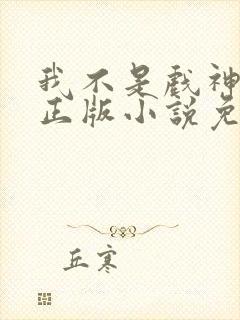 我不是戏神
正版小说免
丘寒